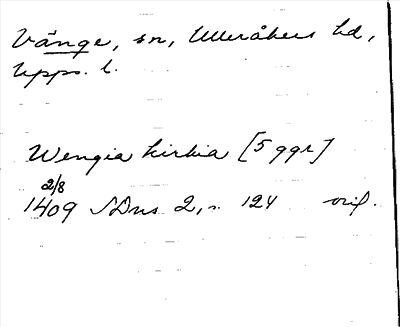 Vänge, sn, Ulleråkers hd,
Upps. l.
Wengia kirkia [5 ggr]
2/8
1409 SDns 2, s. 124 orig.